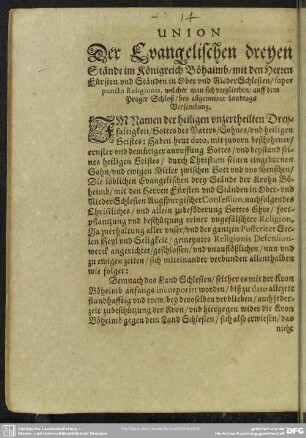 UNION
Der Evangelischen dreyen
Stände im Königreich Böhaimb/ mit den Herren
Fürsten vnd Ständen in Ober vnd Nieder Schlesien/ super
puncto Religionis, welcher man sich verglichen/ auff dem
Prager Schloß/ bey allgemeiner Landtags
Versamlung.
IM Namen der heiligen vnzertheilten Drey-
faltigkeit/ Gottes des Vaters/ Sohnes/ vnd heiligen
Geistes: Haben heut dato/ mit zuvorn beschehener/
ernster vnd demütiger anruffung Gottes/ vnd beystand sei-
nes heiligen Geistes/ durch Christum seinen eingebornen
Sohn/ vnd ewigen Mitler zwischen Gott vnd vns Menschen/
Die löblichen Evangelischen drey Stände der Krohn Bö-
heimb/ mit den Herren Fürsten vnd Ständen in Ober- vnd
Nieder Schlesien Augspurgischer Confession, nachfolgendes
Christliches/ vnd allein zubeförderung Gottes Ehre/ fort-
pflantzung vnd beschützung reiner vngefälschter Religion,
Zu erhaltung aller vnser/ vnd der gantzen Posteritet See-
len Heyl vnd Seligkeit/ gemeyntes Religions Defension-
werck angerichtet/ geschlossen/ vnd vnaufflößlichen/ nun vnd
zu ewigen zeiten/ sich miteinander verbunden allenthalben
wie folget:
Demnach das Land Schlesien/ seither es mit der Kron
Böheimb anfangs incorporirt worden/ biß zu dato allezeit
standhafftig vnd trew/ bey deroselben verblieben/ auch jeder-
zeit zubeschützung der Kron/ vnd hiergegen wider die Kron
Böheimb gegen dem Land Schlesien/ sich also erwiesen/ das
nicht